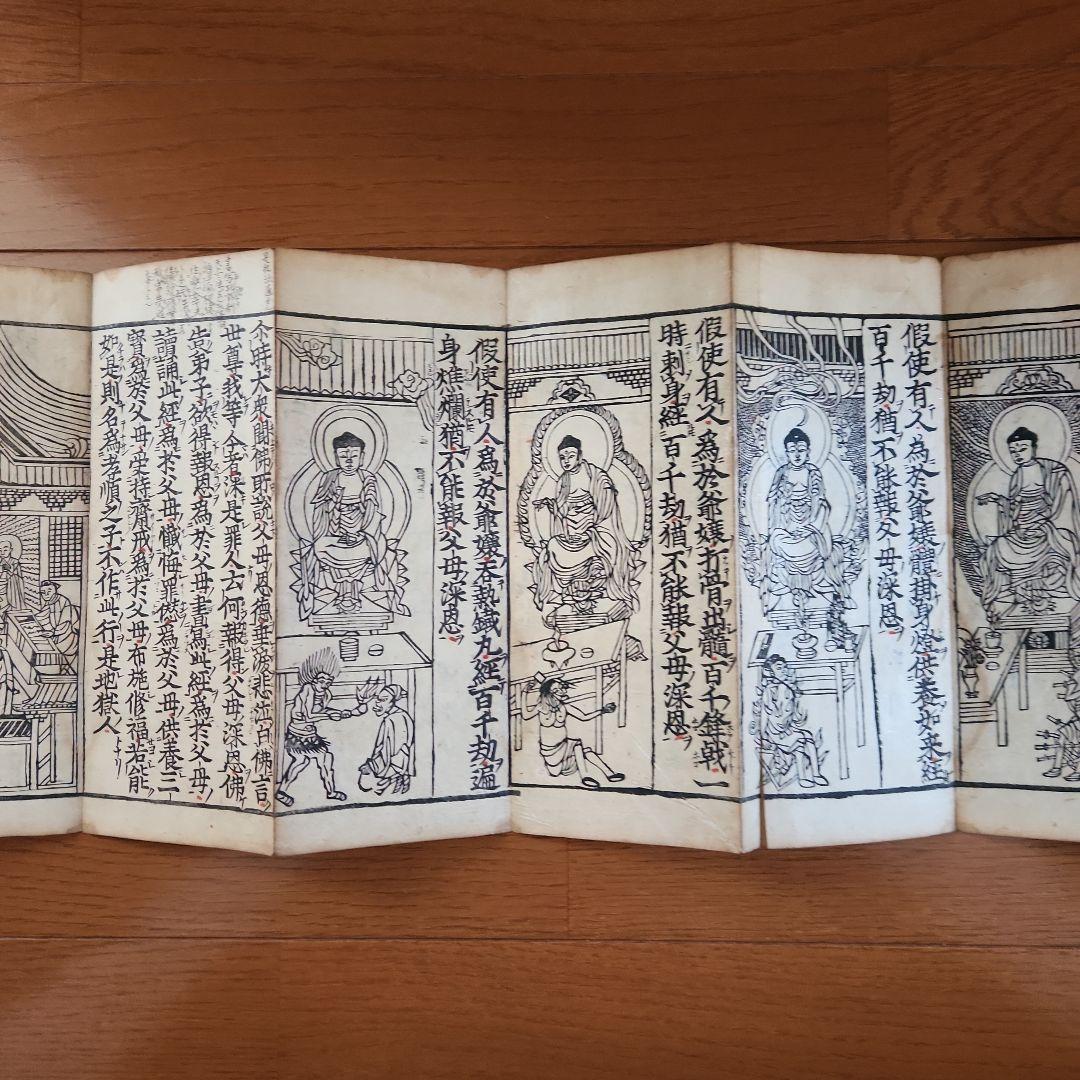 假使有人為於爺孃體掛身燈供養如來經
百千劫猶不能報父母深恩
假使有人為於爺孃打骨出髓百千鋒戟一
時刺身經百千劫猶不能報父母深恩
假使有人為於爺孃吞熱鐵丸經百千劫遍
身燋爛猶不能報父母深恩
尒時大衆聞佛所說父母恩德垂淚悲泣白佛言
世尊我等今者深是罪人云何報得父母深恩佛
告弟子欲得報恩為於父母書寫此經為於父母
讀誦此經為於父母懺悔罪愆為於父母供養三
寶為於父母受持齋戒為於父母布施修福若能
如是則名為孝順之子不作此行是地獄人